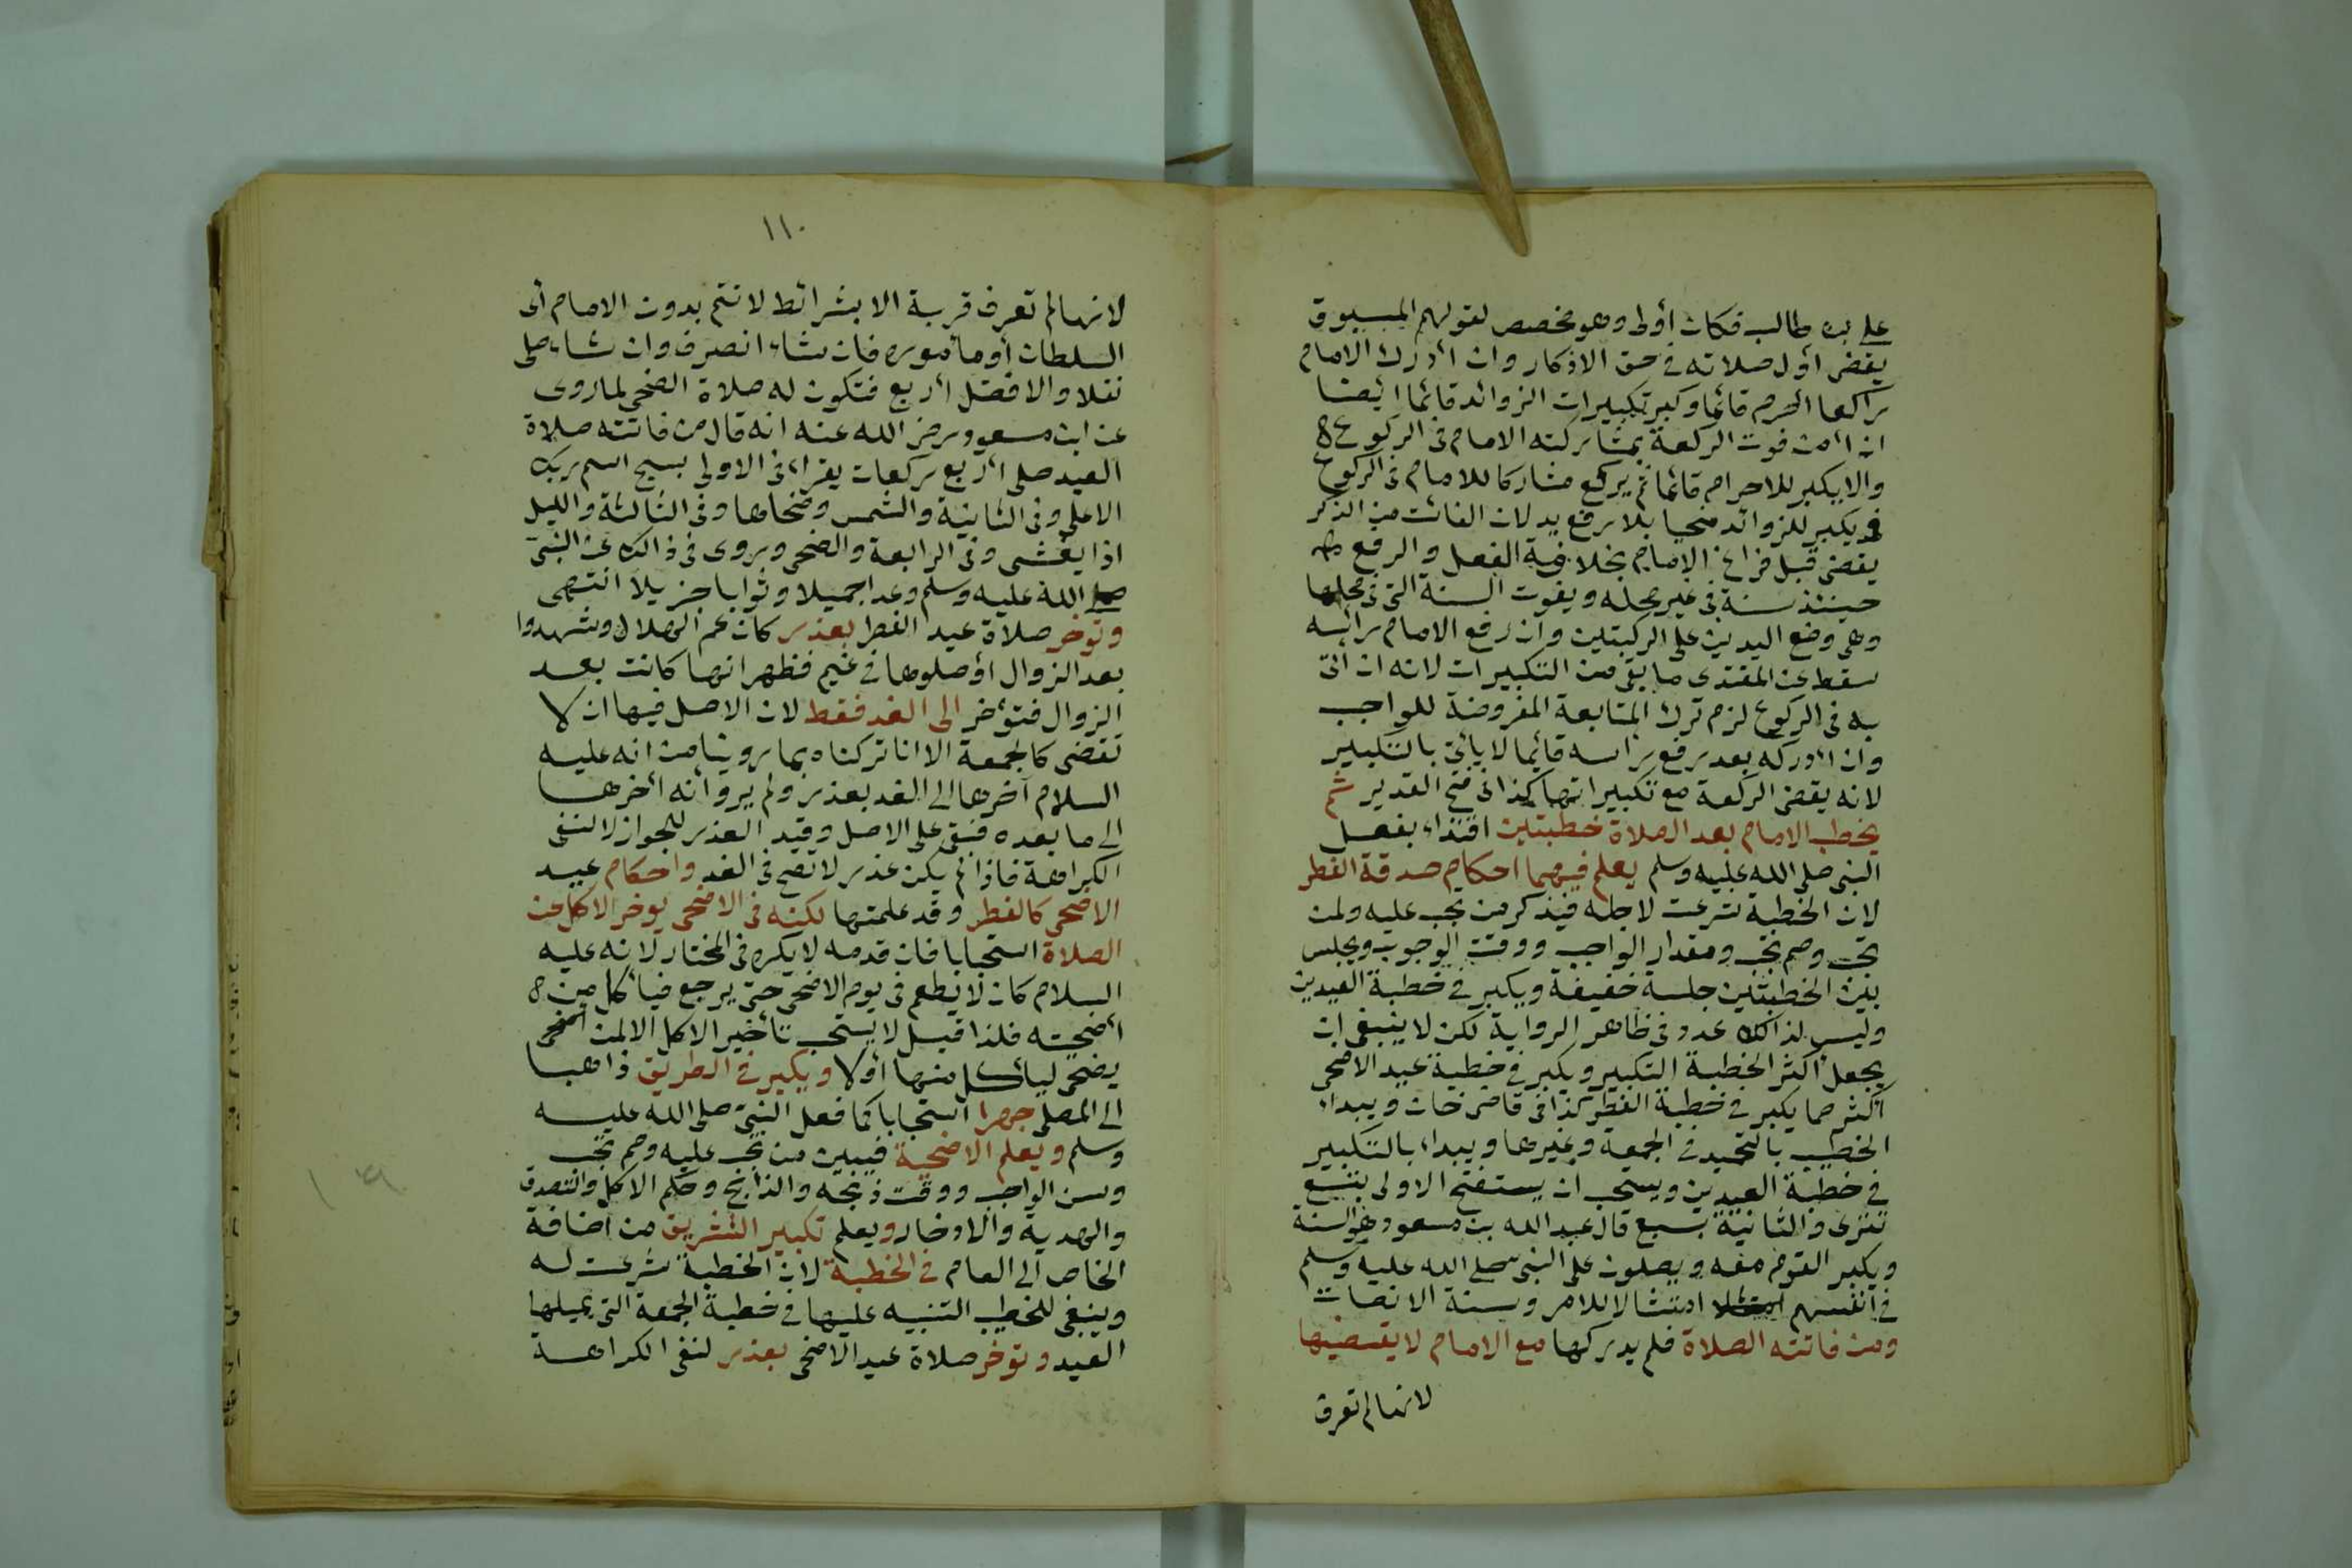 علي بن طالب فكان أولى وهو مخصص لقولهم المسبوق
يقضي أول صلاته في حق الاذكار وان أدرك الامام
راكعا أحرم قائما وكبر تكبيرات الزوائد قائما ايضا
ان أمن فوت الركعة بمشاركته الامام في الركوع
والا يكبر للاحرام قائما ثم يركع مشاركا للامام في الركوع
ويكبر للزوائد منحيا بلا رفع يد لان الفائت من الذكر
يقضى قبل فراغ الامام بخلاف الفعل والرفع
حينئذ سنة في غير محله ويفوت السنة التي في محلها
وهي وضع اليدين على الركبتين وان رفع الامام راسه
سقط عن المقتدى ما بقي من التكبيرات لانه ان اتى
به في الركوع لزم ترك المتابعة المفروضة للواجب
وان أدركه بعد رفع راسه قائما لا يأتي بالتكبير
لانه يقضي الركعة مع تكبيراتها كذا في فتح القدير ثم
يخطب الامام بعد الصلاة خطبتين اقتداء بفعل
النبي صلى الله عليه وسلم يعلم فيهما احكام صدقة الفطر
لان الخطبة شرعت لاجله فيذكر من تجب عليه ولمن
تجب ومم تجب ومقدار الواجب ووقت الوجوب ويجلس
بين الخطبتين جلسة خفيفة ويكبر في خطبة العيدين
وليس لذالك عدد في ظاهر الرواية لكن لا ينبغي ان
يجعل اكثر الخطبة التكبير ويكبر في خطبة عيد الاضحى
اكثر مما يكبر في خطبة الفطر كذا في قاضى خان ويبداء
الخطيب بالتحميد في الجمعة وغيرها ويبداء بالتكبير
في خطبة العيدين ويستحب ان يستفتح الاولى بتسع
تترى والثانية بسبع قال عبد الله بن مسعود هو السنة
ويكبر القوم معه ويصلون على النبي صلى الله عليه وسلم
في انفسهم امتثالا للامر وسنة الانصات
ومن فاتته الصلاة فلم يدركها مع الامام لا يقضيها
لانها لم تعرف
١١٠
لانها لم تعرف قربة الا بشرائط لا تتم بدون الامام أى
السلطان أو مأموره فان شاء انصرف وان شاء صلى
نفلا والافضل أربع فتكون له صلاة الضحى لما روى
عن ابن مسعود رضي الله عنه انه قال من فاتته صلاة
العيد صلى أربع ركعات يقراء في الاولى بسبح اسم ربك
الاعلى وفي الثانية والشمس وضحاها وفي الثالثة والليل
اذا يغشى وفي الرابعة والضحى وروى في ذالك عن النبي
صلى الله عليه وسلم وعدا جميلا وثوابا جزيلا انتهى
وتوخر صلاة عيد الفطر بعذر كان غم الهلال وشهدوا
بعد الزوال أو صلوها في غيم فظهر انها كانت بعد
الزوال فتؤخر الى الغد فقط لان الاصل فيها ان لا
تقضى كالجمعة الا انا تركناه بما روينا من انه عليه
السلام آخرها الى الغد بعذر ولم يرو أنه أخرها
الى ما بعده فبقي على الاصل وقيد العذر للجواز لا لنفي
الكراهة فاذا لم يكن عذر لا تصح في الغد واحكام عيد
الاضحى كالفطر وقد علمتها لكنه في الاضحى يوخر الاكل عن
الصلاة استحبابا فان قدمه لا يكره في المختار لانه عليه
السلام كان لا يطعم في يوم الاضحى حتى يرجع فيأكل من
أضحيته فلذا قيل لا يستحب تأخير الاكل الا لمن
يضحى ليأكل منها أولا ويكبر في الطريق ذاهبا
الى المصلى جهرا استحبابا كما فعل النبي صلى الله عليه
وسلم ويعلم الاضحية فيبين من تجب عليه ومم تجب
وسن الواجب ووقت ذبحه والذابح وحكم الاكل والتصدق
والهدية والادخار ويعلم تكبير التشريق من اضافة
الخاص الى العام في الخطبة لان الخطبة شرعت له
وينبغي للخطيب التنبيه عليها في خطبة الجمعة التي يليها
العيد وتوخر صلاة عيد الاضحى بعذر لنفي الكراهة